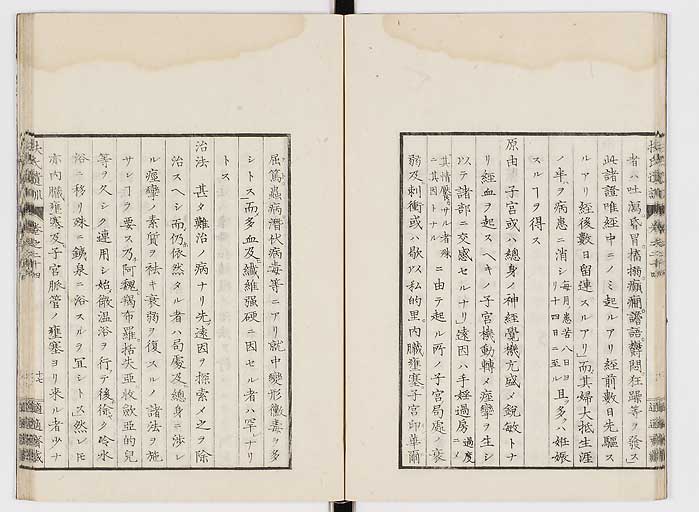 者ハ吐瀉昏冒搐搦癲癇譫語鬱悶狂躁等ヲ發ス」
此諸證唯經中ニノミ起ルアリ經前數日先驅ス
ルアリ經後數日留連スルアリ」而其婦大抵生涯
ノ半ヲ病患ニ消シ每月患苦八日ヨリ十四日ニ至ル且多クハ妊娠
スルヿヲ得ス
原由 子宮或ハ總身ノ神經覺機亢盛メ銳敏トナ
リ經血ヲ起スヘキノ子宮機動轉メ痙攣ヲ生シ
以テ諸部ニ交感セルナリ」遠因ハ手婬過房過度ニメ
其情慾サル者殊ニ其因トナルニ由テ起ル所ノ子宮局處ノ衰
弱及刺衝或ハ歇以私的里内臟壅塞子宮印華爾
屈篤蟲病潛伏病毒等ニアリ就中變形黴毒ヲ多
シトス」而多血及ヒ纖維强硬ニ因セル者ハ罕ナリ
トス
治法 甚タ難治ノ病ナリ先遠因ヲ探索メ之ヲ除
治スヘシ而仍ホ依然タル者ハ局處及ヒ總身ニ涉レ
ル痙攣ノ素質ヲ祛キ衰弱ヲ復スルノ諸法ヲ施
サンヿヲ要ス乃阿魏羯布羅括失亞收斂亞的兒
等ヲ久シク連用シ始微温浴ヲ行テ後徐ク冷水
浴ニ移リ殊ニ鐵泉ニ浴スルヲ宜シトス然レ𪜈
亦内臟壅塞及ヒ子宮脈管ノ壅塞ヨリ來ル者少ナ